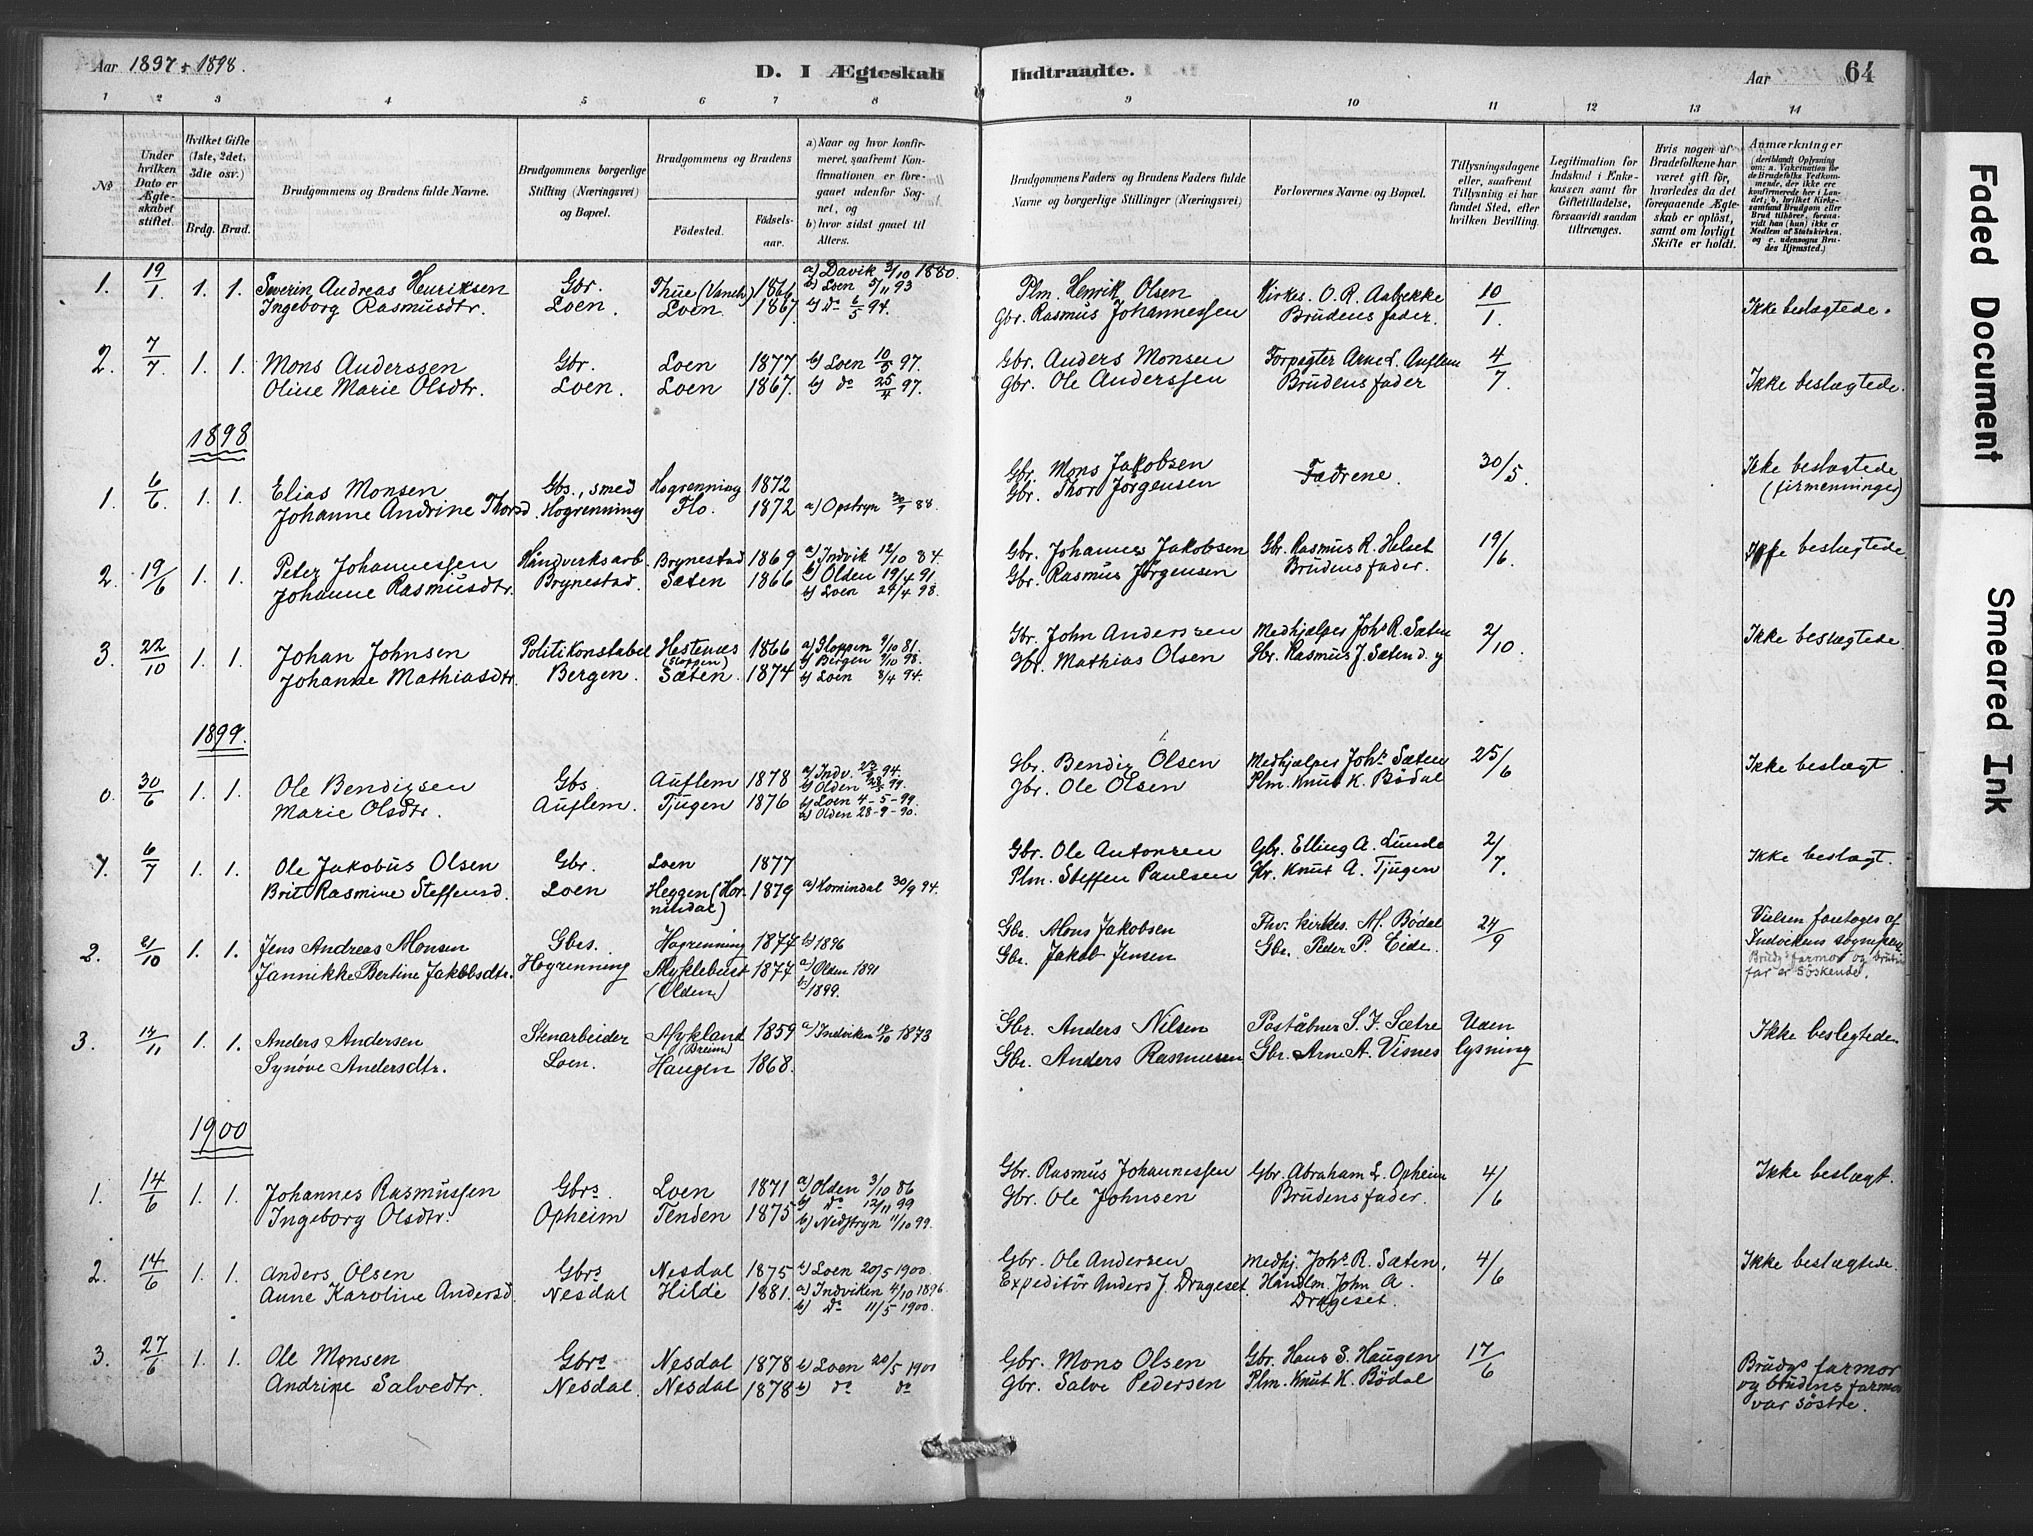 Aar 1897 + 1898.
D. I Ægteskab Indtraadte.
Aar 64
1 2 3 4 5 6 7 8 9 10 11 12 13 14
No
Under hvilken Dato er Ægteskabet stiftet.
Hvilket Gifte (1ste, 2det, 3die osv.)
Brdg. Brud.
Brudgommens og Brudens fulde Navne.
Brudgommens borgerlige Stilling (Næringsvei) og Bopæl.
Brudgommens og Brudens
Fødested. Fødselsaar.
a) Naar og hvor konfirmeret, saafremt Konfirmationen er foregaaet udenfor Sognet, og
b) hvor sidst gaaet til Alters.
Brudgommens Faders og Brudens Faders fulde Navne og borgerlige Stillinger (Næringsvei)
Forlovernes Navne og Bopæl.
Tillysningsdagene eller, saafremt Tillysning ei har fundet Sted, efter hvilken Bevilling.
Legitimation for Indskud i Enkekassen samt for Giftetilladelse, forsaavidt saadan tiltrænges.
Hvis nogen af Brudefolkene har været gift før, hvorledes da det foregaaende Ægteskab er opløst, samt om lovligt Skifte er holdt.
Anmærkninger
(deriblandt Oplysning om: a. Vakcination for de Brudefolks Vedkommende, der ikke ere konfirmerede her i Landet; b. hvilket Kirkesamfund Brudgom eller Brud tilhører, forsaavidt han (hun) ikke er Medlem af Statskirken, og c. udensogns Brudes Hjemsted.)
1. 19/1. 1. 1. Severin Andreas Henriksen Gbr. 1866 a) Davik 3/10 1880. Plm. Henrik Olsen Kirkes. O. R. Aabrekke 10/1. Ikke beslægtede.
b) Loen 5/11 93
Ingeborg Rasmusdtr. Loen. Loen 1867. b) do 6/5 94. Gbr. Rasmus Johannessen Brudens fader.
2. 7/7. 1. 1. Mons Anderssen Gbr. Loen 1877 b) Loen 10/5 97. Gbr. Anders Monsen Forpagter Arne L. Auflem 4/7. Ikke beslægtede.
Oline Marie Olsdtr. Loen. Loen 1867. b) do 25/4 97. Gbr. Ole Anderssen Brudens fader
1898
1. 6/6. 1. 1. Elias Monsen Gbs., smed Hogrenning 1872 Gbr. Mons Jakobsen Fædrene. 30/5. Ikke beslægtede
Johanne Andrine Thorsd. Hogrenning Flo. 1872 a) Opstryn 30/9 88. Gbr. Thor Jørgensen (firmenninger)
2. 19/6 1. 1. Peter Johannessen Håndverksarb Brynestad 1869 a) Indvik 12/10 84. Gbr. Johannes Jakobsen Gbr. Rasmus R. Helset 19/6. beslægtede
b) Olden 19/4 91.
Johanne Rasmusdtr. Brynestad. Sæten 1866 b) Loen 24/4 98. Gbr. Rasmus Jørgensen Brudens fader.
3. 22/10 1. 1. Johan Johnsen Politikonstabel Hestenes (Gloppen) 1866 a) Gloppen 9/10 81. Gbr. John Anderssen Medhjælper Johs R. Sæten 2/10. Ikke beslægtede
b) Bergen 9/10 98.
Johanne Mathiasdtr. Bergen. Sæten. 1874 b) Loen 8/4 94. Gbr. Mathias Olsen Gbr. Rasmus J. Sæten d. y
1899.
0. 30/6 1. 1. Ole Bendigsen Gbs Auflem 1878 a) Indv. 23/9 94. Gbr. Bendig Olsen Medhjælper Johs Sæten 25/6 Ikke beslægt.
b) Olden 28/5 99.
Marie Olsdtr. Auflem. Tjugen 1876 b) Loen 4-5-99. Gbr. Ole Olsen Plm. Knut K. Bødal
a) Olden 28-9-90.
1. 6/7 1. 1. Ole Jakobus Olsen Gbr. Loen 1877 Gbr. Ole Antonsen Gbr. Elling A. Lunde 2/7. Ikke beslægt.
Brit Rasmine Steffensd. Loen Heggen (Hornindal) 1879 a) Hornindal 30/9 94. Plm. Steffen Paulsen Gbr. Knut A. Tjugen
2. 21/10 1. 1. Jens Andreas Monsen Gbes. Hogrenning 1874 b) 1896 Gbr. Mons Jakobsen Fhv. kirkes. M. Bødal 24/9 Vielsen foretoges af Indvikens sogneprest
Jannikke Bertine Jakobsdtr. Hogrenning Myklebust (Olden) 1877 a) Olden 1891 b) 1899. Gbr. Jakob Jensen Gbr. Peder P. Eide. Brudgs farmor og brudens far er søskende.
3. 14/11 1. 1. Anders Andersen Stenarbeider Mykland (Breim) 1859 a) Indviken 12/10 1873 Gbr. Anders Nilsen Poståbner S. J. Sætre Uden Ikke beslegtede
Synøve Andersdtr. Loen. Haugen 1868. Gbr. Anders Rasmussen Gbr. Arne A. Visnes lysning
1900
1. 14/6 1. 1. Johannes Rasmussen Gbrs. Loen 1871 a) Olden 3/10 86 Gbr. Rasmus Johannessen Gbr. Abraham L. Opheim 4/6 Ikke beslægt.
b) do 12/11 99
Ingeborg Olsdtr. Opheim Tenden 1875 b) Nedstryn 11/10 99. Gbr. Ole Johnsen Brudens fader.
2. 14/6 1. 1. Anders Olsen Gbrs Nesdal 1875 b) Loen 20/5 1900. Gbr. Ole Andersen Medhj. Johs R. Sæten. 4/6 Ikke beslægtede.
Anne Karoline Andersd. Nesdal Hilde 1881. a) Indviken 4/10 1896 Expeditør Anders J. Drageset. Handlm. John A. Drageset.
b) Do 11/5 1900.
3. 27/6 1. 1. Ole Monsen Gbrs Nesdal 1878 b) Loen 20/5 1900 Gbr. Mons Olsen Gbr. Hans S. Haugen 17/6 Brudgs farmor
Andrine Salvedtr. Nesdal. Nesdal 1878 b) do do Gbr. Salve Pedersen Plm. Knut K. Bødal og brudens farmor
var søstre.
Faded Document
Smeared Ink